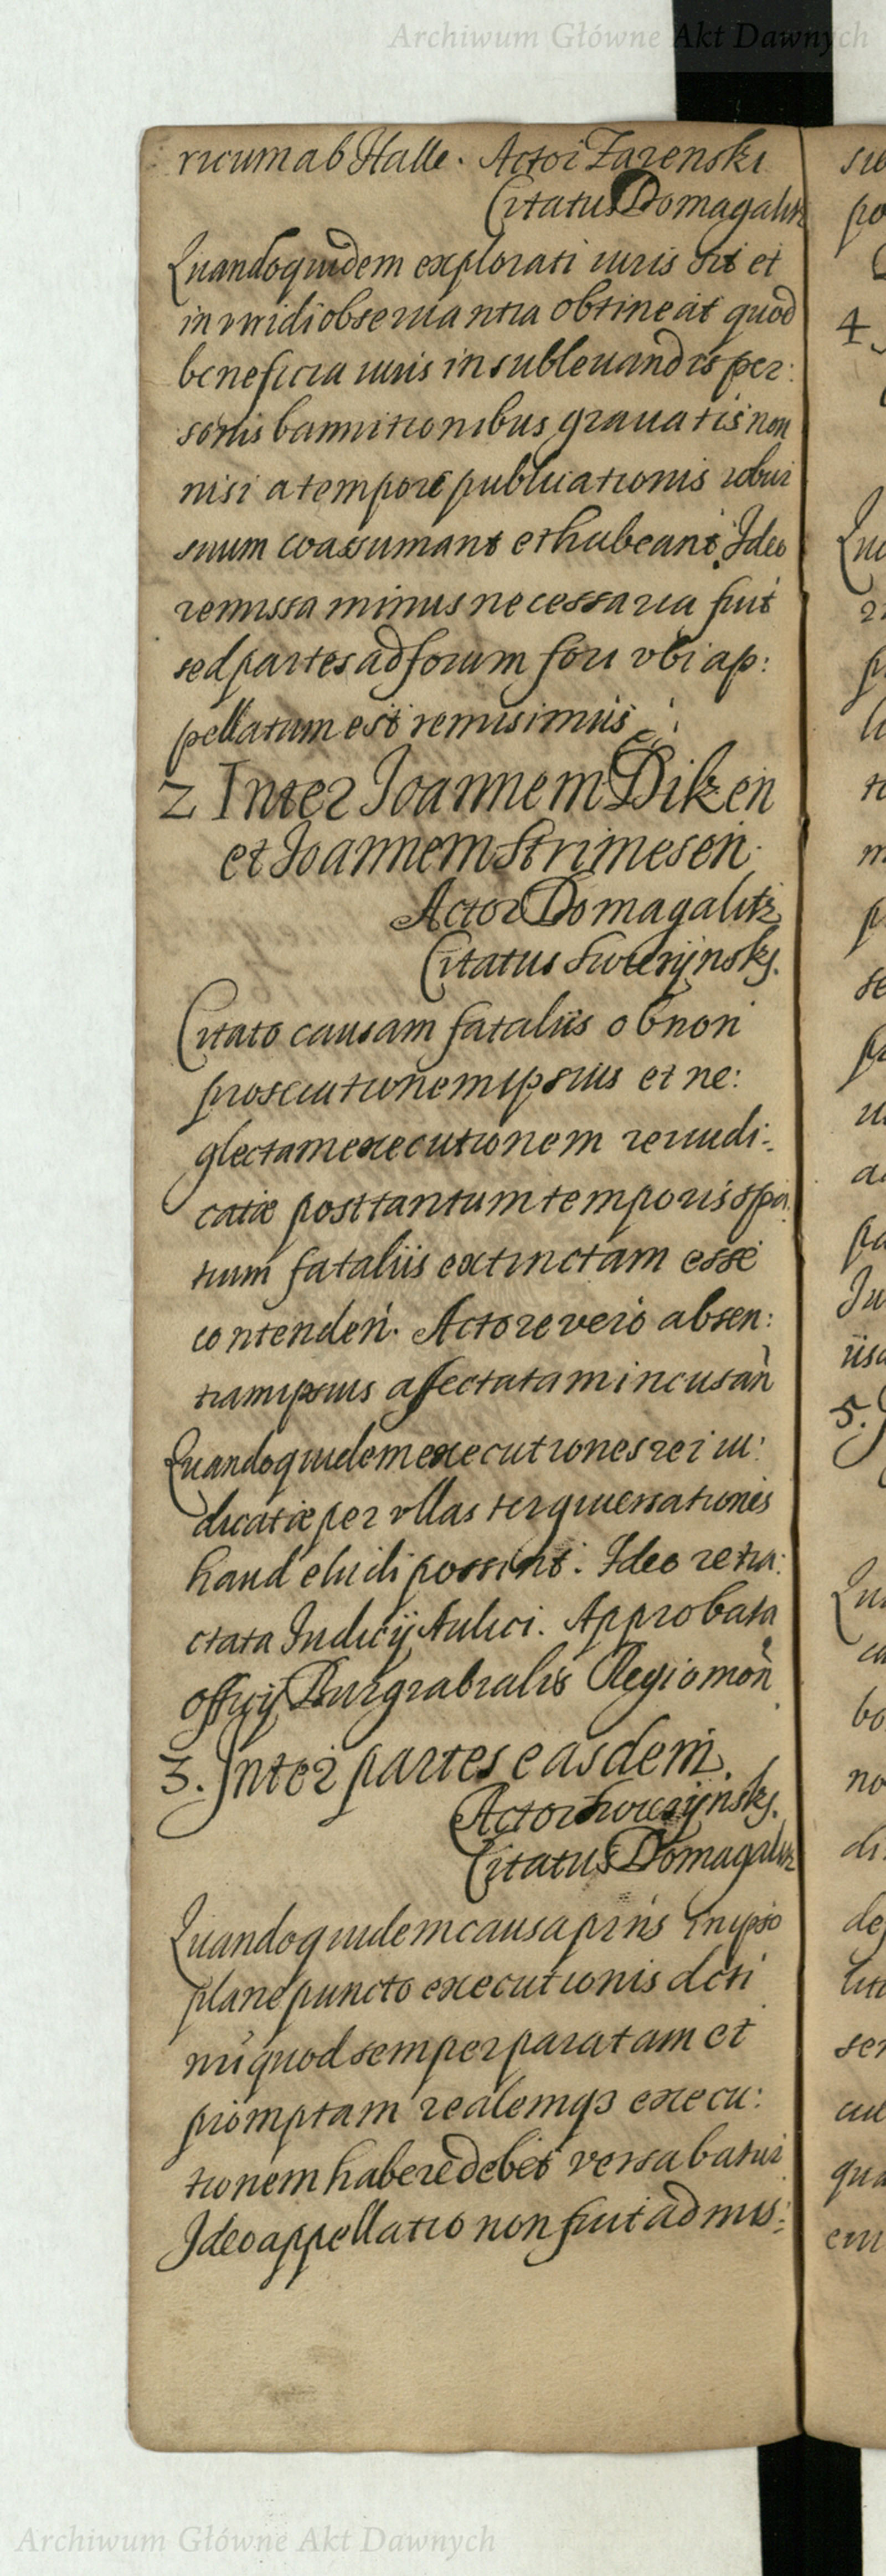 Archiwum Główne Akt Dawnych
ricum ab Halle. Actor Zarenski
Citatus Domagalitz
Quandoquidem explorati iuris sit et
in viridi obseruantia obtineat quod
beneficia iuris in subleuandis per:
sonis bannitionibus grauatis non
nisi a tempore publicationis robur
suum coassumant et habeant. Ideo
remissa minus necessaria fuit
sed partes ad forum fori vbi ap:
pellatum est remisimus
2 Inter Joannem Diken
et Joannem Strimesen.
Actor Domagalitz
Citatus Swieryjnskj.
Citato causam fataliis ob non
prosecutionem ipsius et ne:
glectam executionem reiudi:
catæ post tantum temporis spa:
tium fataliis extinctam esse
contenden. Actore vero absen:
tiam ipsius affectatam incusan
Quandoquidem executiones rei iu:
dicatæ per vllas tergiuersationes
haud eludi possint. Ideo retra:
ctata Judicij Aulici. Approbata
officij Burgrabialis Regiomon
3. Inter partes easdem.
Actor Swieryjnskj.
Citatus Domagalitz
Quandoquidem causa prius in ipso
plane puncto executionis dcti
quod semper paratam et
promptam realemq3 execu:
tionem habere debet versabatur
Ideo appellatio non fuit admis:
4
5.
Archiwum Główne Akt Dawnych